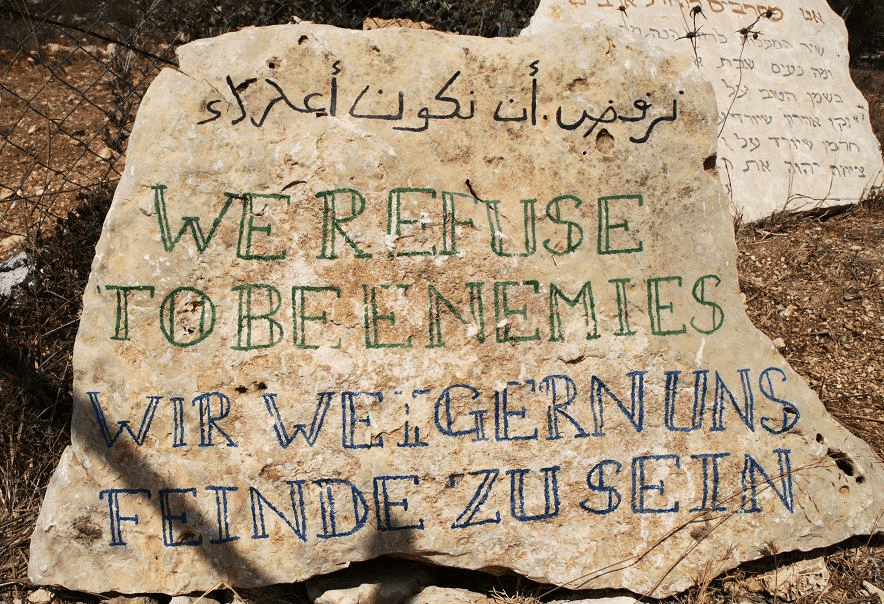 نرفض أن نكون أعداء
WE REFUSE
TO BE ENEMIES
WIR WEIGERN UNS
FEINDE ZU SEIN
אנו מסרבים
שיר המעלות
ומה נעים שבת
כשמן הטוב על
זקן אהרון
חרמן שיורד על
ציווה יהוה את